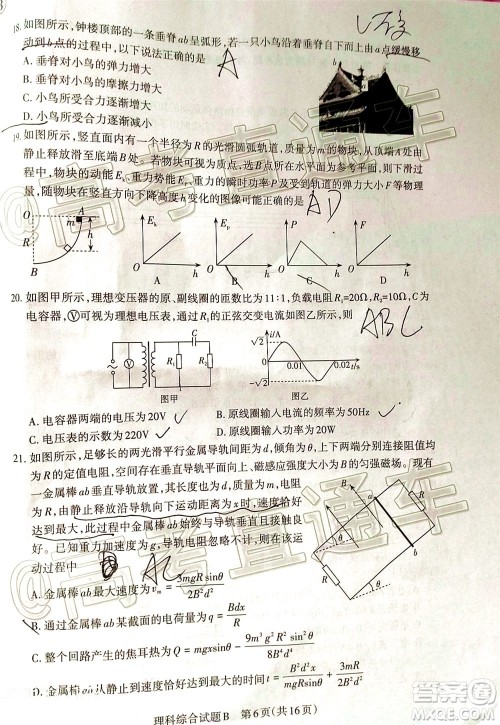 18. 如图所示，钟楼顶部的一条垂脊ab呈弧形，若一只小鸟沿着垂脊自下而上由a点缓慢移
动到b点的过程中，以下说法正确的是
A
A. 垂脊对小鸟的弹力增大
B. 垂脊对小鸟的摩擦力增大
C. 小鸟所受合力逐渐增大
D. 小鸟所受合力逐渐减小
19. 如图所示，竖直面内有一个半径为R的光滑圆弧轨道，质量为m的物块，从顶端A处由
静止释放滑至底端B处。若物块可视为质点，B点所在水平面为参考平面，则下滑过
程中，物块的动能Eₖ、重力势能Eₚ、重力瞬时功率P及受到轨道的弹力大小F等物理
量，随物块在竖直方向下降高度h变化的图像可能正确的是
AD
O A m h R B
Eₖ O h A
Eₚ O h B
P O h C
F O h D
20. 如图甲所示，理想变压器的原、副线圈的匝数比为11:1，负载电阻R₁=20Ω，R₂=10Ω，C为
电容器，Ⓥ可视为理想电压表，通过R₁的正弦交变电流如图乙所示，则
ABC
V R₁ C R₂
图甲
i/A √2 O -√2 0.01 0.02 t/s
图乙
A. 电容器两端的电压为20V
B. 原线圈输入电流的频率为50Hz
C. 电压表的示数为220V
D. 原线圈输入的电压为20V
21. 如图所示，足够长的两光滑平行金属导轨间距为d，倾角为θ，上下两端分别连接阻值均
为R的定值电阻，空间存在垂直导轨平面向上、磁感应强度大小为B的匀强磁场。现有
一质量为m、阻值为R的金属棒ab垂直导轨放置，金属棒
由静止释放沿导轨向下运动距离为x时，速度恰好
达到最大，此过程中金属棒ab始终与导轨接触良
好。已知重力加速度为g，导轨电阻忽略不计，则在该运
动过程中
AC
R a b θ θ R
A. 金属棒ab最大速度为vₘ=3mgRsinθ/2B²d²
B. 通过金属棒ab某截面的电荷量为q=Bdx/R
C. 整个回路产生的焦耳热为Q=mgxsinθ-9m³g²R²sin²θ/8B⁴d⁴
D. 金属棒ab运动到最大速度所用的时间t=B²d²x/mgR sinθ+3mR/2B²d²
理科综合试题B 第6页(共16页)
@高考直通车
@高考直通车